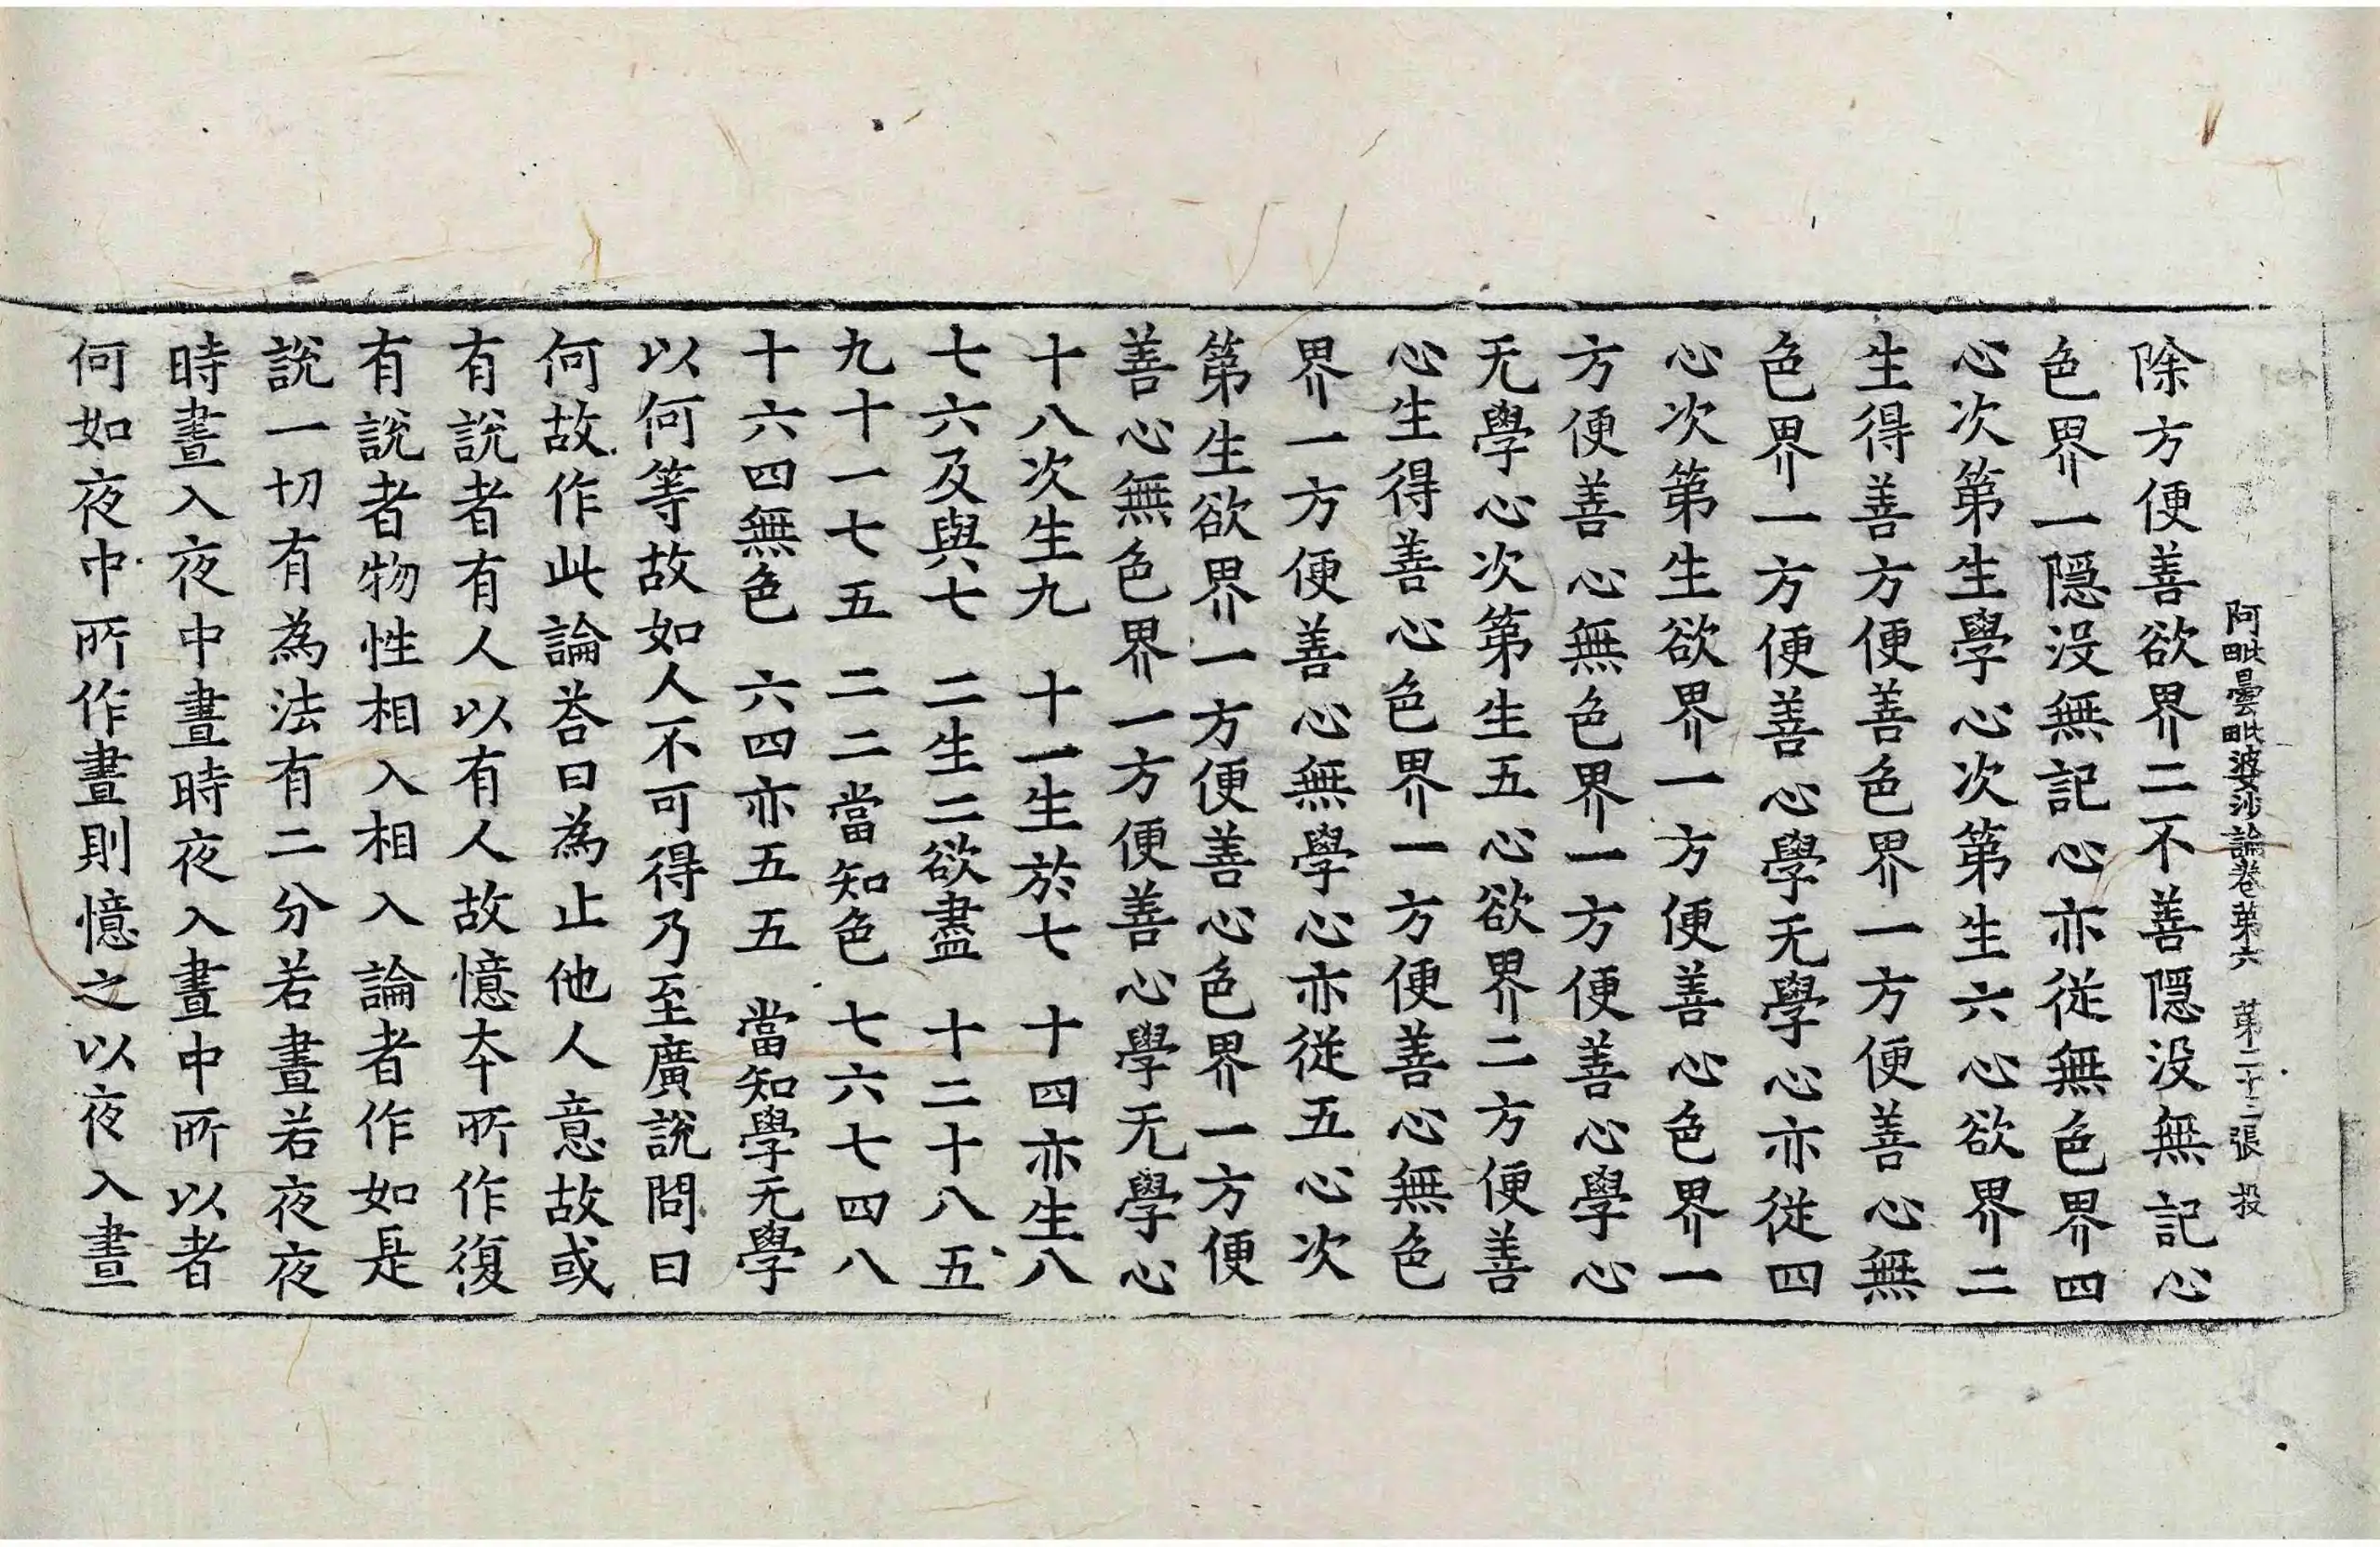 阿毗曇毗婆沙論卷第六　第二十三張　投
除方便善欲界二不善隱没無記心
色界一隱没無記心亦從無色界四
心次第生學心次第生六心欲界二
生得善方便善色界一方便善心無
色界一方便善心學无學心亦從四
心次第生欲界一方便善心色界一
方便善心無色界一方便善心學心
无學心次第生五心欲界二方便善
心生得善心色界一方便善心無色
界一方便善心無學心亦從五心次
第生欲界一方便善心色界一方便
善心無色界一方便善心學无學心
十八次生九　十一生於七　十四亦生八
七六及與七　二生二欲盡　十二十八五
九十一七五　二二當知色　七六七四八
十六四無色　六四亦五五　當知學无學
以何等故如人不可得乃至廣說問曰
何故作此論荅曰為止他人意故或
有說者有人以有人故憶夲所作復
有說者物性相入相入論者作如是
說一切有為法有二分若晝若夜夜
時晝入夜中晝時夜入晝中所以者
何如夜中所作晝則憶之以夜入晝